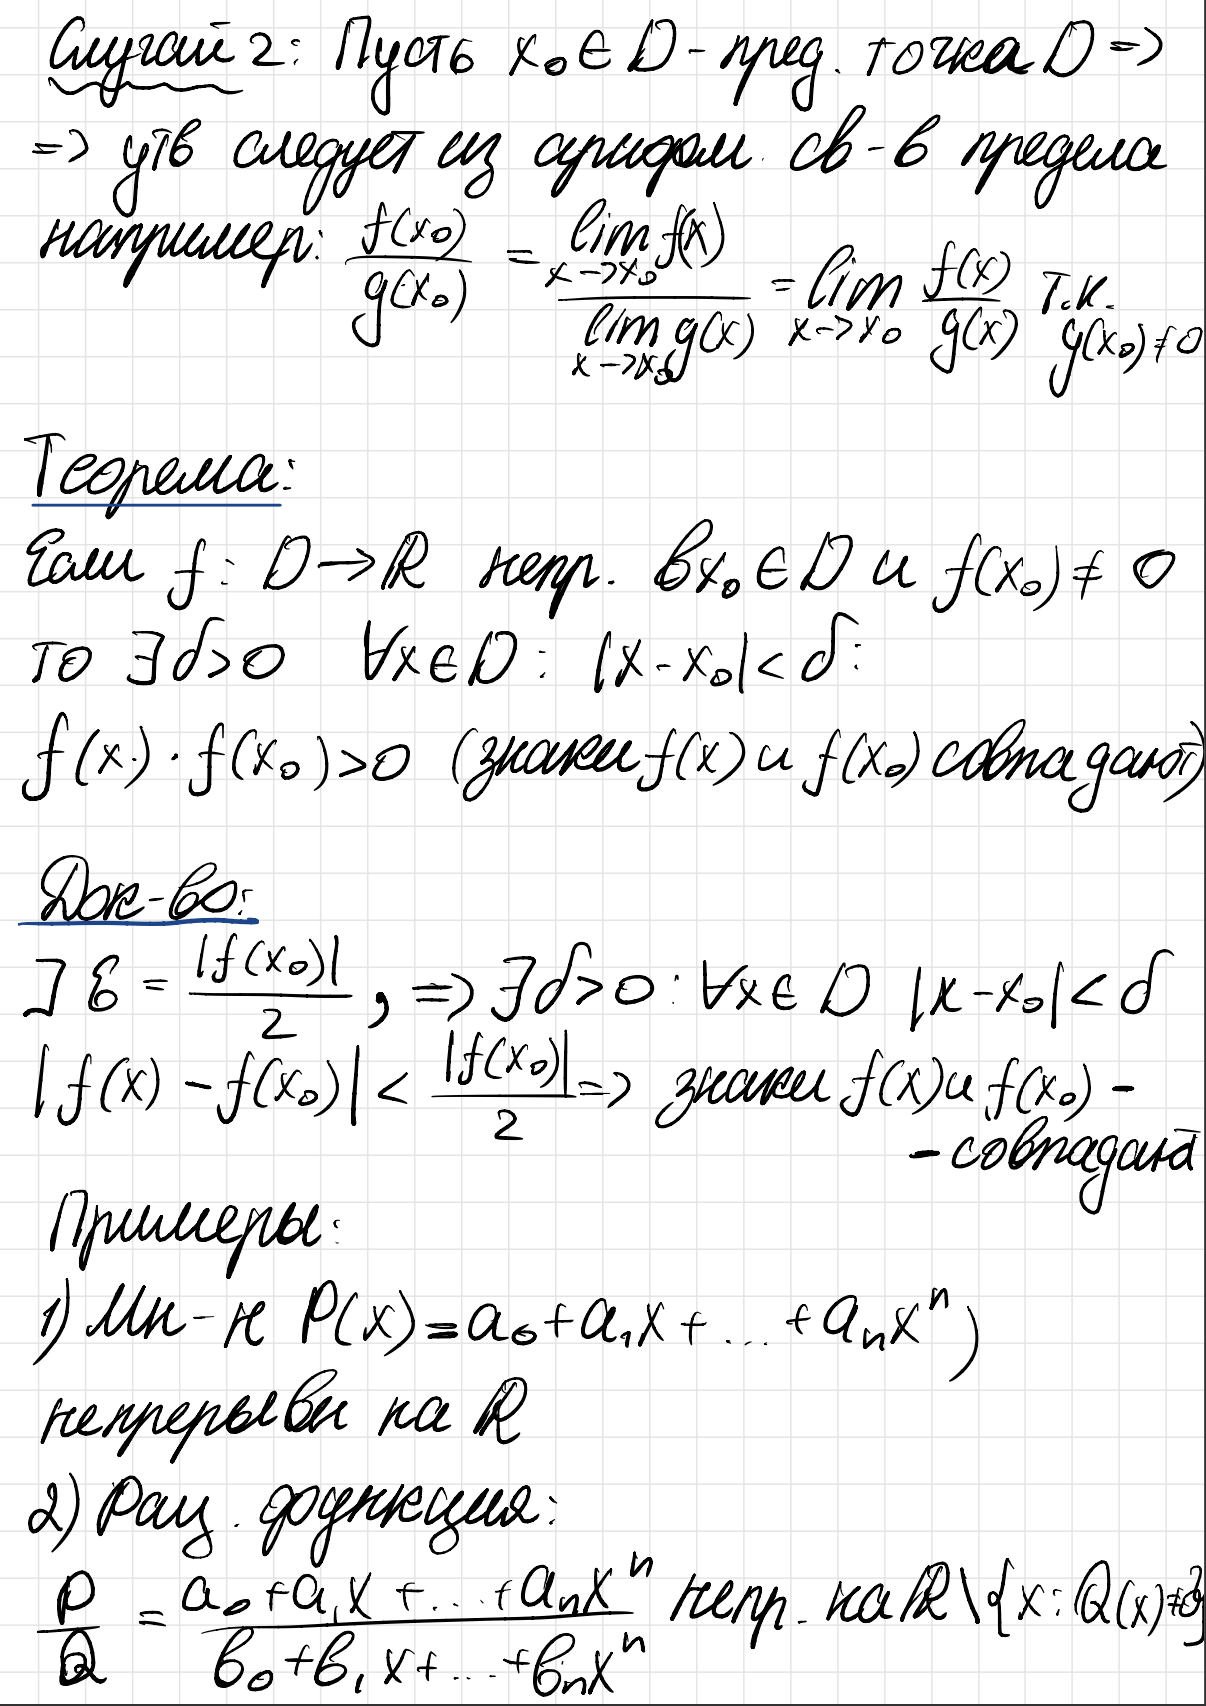 Случай 2: Пусть x₀ ∈ D - пред. точка D =>
=> утв следует из арифм. св-в предела
например: f(x₀)/g(x₀) = lim_{x->x₀} f(x) / lim_{x->x₀} g(x) = lim_{x->x₀} f(x)/g(x) т.к. g(x₀) ≠ 0
Теорема:
Если f: D → ℝ непр. в x₀ ∈ D и f(x₀) ≠ 0
то ∃δ>0 ∀x∈D: |x-x₀| < δ:
f(x)·f(x₀)>0 (знаки f(x) и f(x₀) совпадают)
Док-во:
] ε = |f(x₀)|/2, => ∃δ>0: ∀x∈D |x-x₀|<δ
|f(x) - f(x₀)| < |f(x₀)|/2 => знаки f(x) и f(x₀) -
- совпадают
Примеры:
1) Мн-н P(x)=a₀+a₁x+...+aₙxⁿ)
непрерывн на ℝ
2) Рац. функция:
P/Q = (a₀+a₁x+...+aₙxⁿ)/(b₀+b₁x+...+bₙxⁿ) непр. на ℝ\{x: Q(x)≠0}